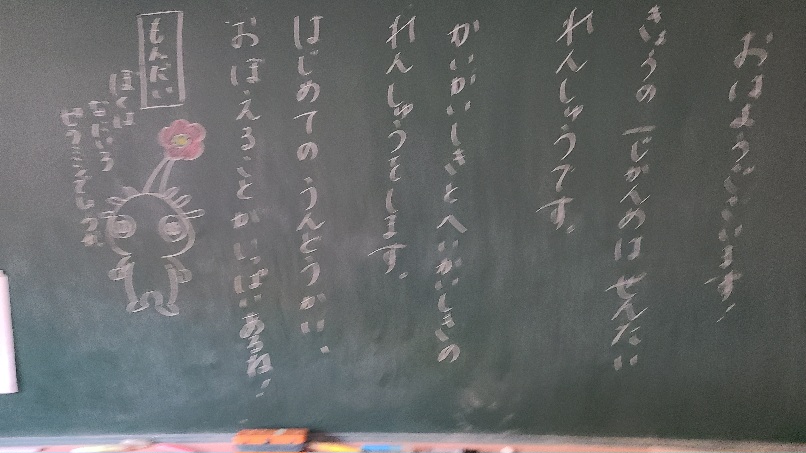 おはようございます!
きょうの 一じかんめは ぜんたい
れんしゅうです。
かいかいしきとへいかいしきの
れんしゅうをします。
はじめてのうんどうかい、
おぼえることがいっぱいあるね!
もんだい
ぼくは
なにいろ